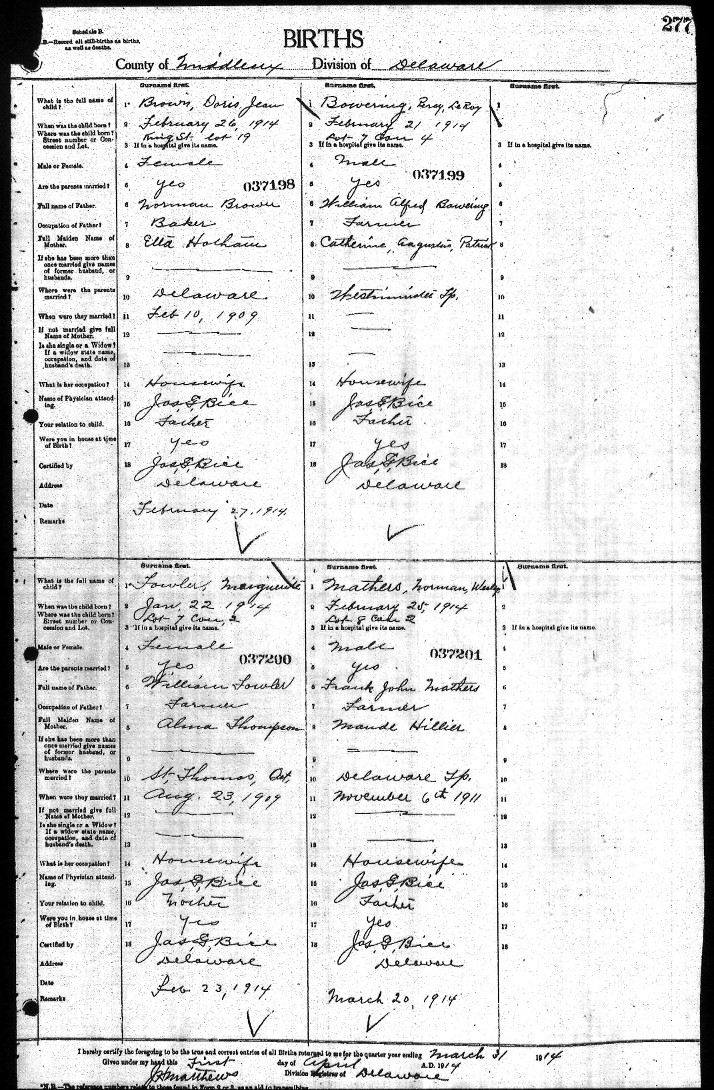 Schedule B.
N.B.—Record all still-births as births, as well as deaths.
BIRTHS
277
County of Middlesex Division of Delaware
Surname first. Surname first. Surname first.
What is the full name of child? 1 Brown, Doris Jean 1 Bowering, Roy, LeRoy 1
When was the child born? 2 February 26, 1914 2 February 21 1914 2
Where was the child born? Street number or Concession and Lot. King St. Lot 19 Lot 7 Con 4
3 If in a hospital give its name. 3 If in a hospital give its name. 3 If in a hospital give its name.
Male or Female. 4 Female 4 Male 4
037198 037199
Are the parents married? 5 Yes 5 Yes 5
Full name of Father. 6 Norman Brown 6 William Alfred Bowering 6
Occupation of Father? 7 Baker 7 Farmer 7
Full Maiden Name of Mother. 8 Ella Hotham 8 Catherine, Augustus, Patrick 8
If she has been more than once married give names of former husband, or husbands. 9 9 9
Where were the parents married? 10 Delaware 10 Westminster Tp. 10
When were they married? 11 Feb 10, 1909 11 11
If not married give full Name of Mother. 12 12 12
Is she single or a Widow? If a widow state name, occupation, and date of husband's death. 13 13 13
What is her occupation? 14 Housewife 14 Housewife 14
Name of Physician attending. 15 Jas G Bice 15 Jas G Bice 15
Your relation to child. 16 Father 16 Father 16
Were you in house at time of Birth? 17 Yes 17 Yes 17
Certified by 18 Jas G Bice 18 Jas G Bice 18
Address Delaware Delaware
Date February 27, 1914
Remarks
Surname first. Surname first. Surname first.
What is the full name of child? 1 Fowler, Marguerite 1 Mathers, Norman, Wesley 1
When was the child born? 2 Jan. 22 1914 2 February 25, 1914 2
Where was the child born? Street number or Concession and Lot. Lot 7 Con 2 Lot 8 Con 2
3 If in a hospital give its name. 3 If in a hospital give its name. 3 If in a hospital give its name.
Male or Female. 4 Female 4 Male 4
037200 037201
Are the parents married? 5 Yes 5 Yes 5
Full name of Father. 6 William Fowler 6 Frank John Mathers 6
Occupation of Father? 7 Farmer 7 Farmer 7
Full Maiden Name of Mother. 8 Alma Thompson 8 Maude Hillier 8
If she has been more than once married give names of former husband, or husbands. 9 9 9
Where were the parents married? 10 St. Thomas, Ont. 10 Delaware Tp. 10
When were they married? 11 Aug. 23, 1909 11 November 6th 1911 11
If not married give full Name of Mother. 12 12 12
Is she single or a Widow? If a widow state name, occupation, and date of husband's death. 13 13 13
What is her occupation? 14 Housewife 14 Housewife 14
Name of Physician attending. 15 Jas G Bice 15 Jas G Bice 15
Your relation to child. 16 Mother 16 Father 16
Were you in house at time of Birth? 17 Yes 17 Yes 17
Certified by 18 Jas G Bice 18 Jas G Bice 18
Address Delaware Delaware
Date Feb 23, 1914
Remarks March 20, 1914
I hereby certify the foregoing to be the true and correct entries of all Births returned to me for the quarter year ending March 31 1914
Given under my hand this First day of April A.D. 1914
Matthews Division Registrar of Delaware